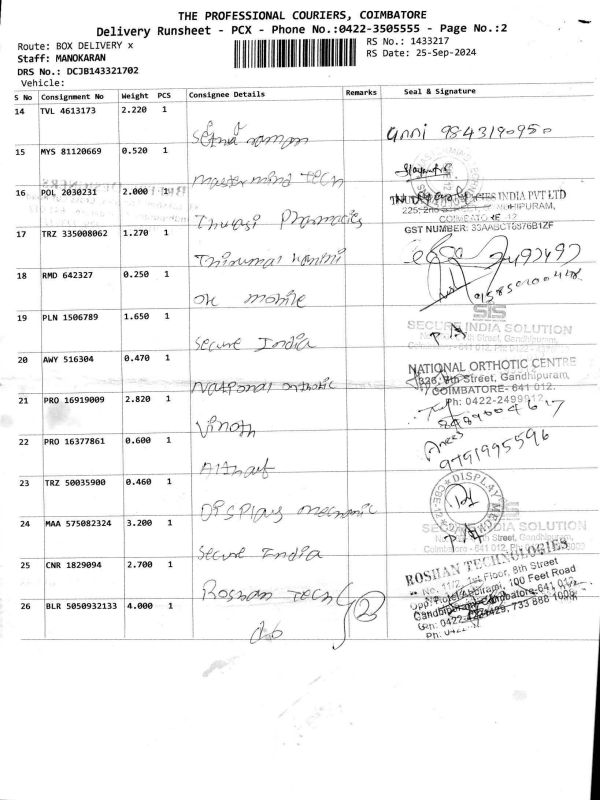 THE PROFESSIONAL COURIERS, COIMBATORE
Delivery Runsheet - PCX - Phone No.:0422-3505555 - Page No.:2
Route: BOX DELIVERY x
RS No.: 1433217
Staff: MANOKARAN
RS Date: 25-Sep-2024
DRS No.: DCJB143321702
Vehicle:
S No Consignment No Weight PCS Consignee Details Remarks Seal & Signature
14 TVL 4613173 2.220 1
anni 9843190950
15 MYS 81120669 0.520 1
master mind tech
16 POL 2030231 2.000 1
INDIA PVT LTD
225, 2nd
COIMBATORE-12
Thulasi Pharmacies
GST NUMBER: 33AABCT6876B1ZF
17 TRZ 335008062 1.270 1
Thirumal
18 RMD 642327 0.250 1
9585020048
ok mobile
19 PLN 1506789 1.650 1
SIS
SECURE INDIA SOLUTION
Street, Gandhipuram,
Secure India
20 AWY 516304 0.470 1
NATIONAL ORTHOTIC CENTRE
326, 9th Street, Gandhipuram,
COIMBATORE- 641 012.
National orthotic
21 PRO 16919009 2.820 1
Ph: 0422-2499912
Vinoth
22 PRO 16377861 0.600 1
9791995596
Althauf
23 TRZ 50035900 0.460 1
DISPLAY MECHANIC
Display mechanic
24 MAA 575082324 3.200 1
SECURE INDIA SOLUTION
Street, Gandhipuram,
Secure India
25 CNR 1829094 2.700 1
ROSHAN TECHNOLOGIES
No. 11/2, 1st Floor, 8th Street
100 Feet Road
Roshan Tech 2
26 BLR 5050932133 4.000 1
do